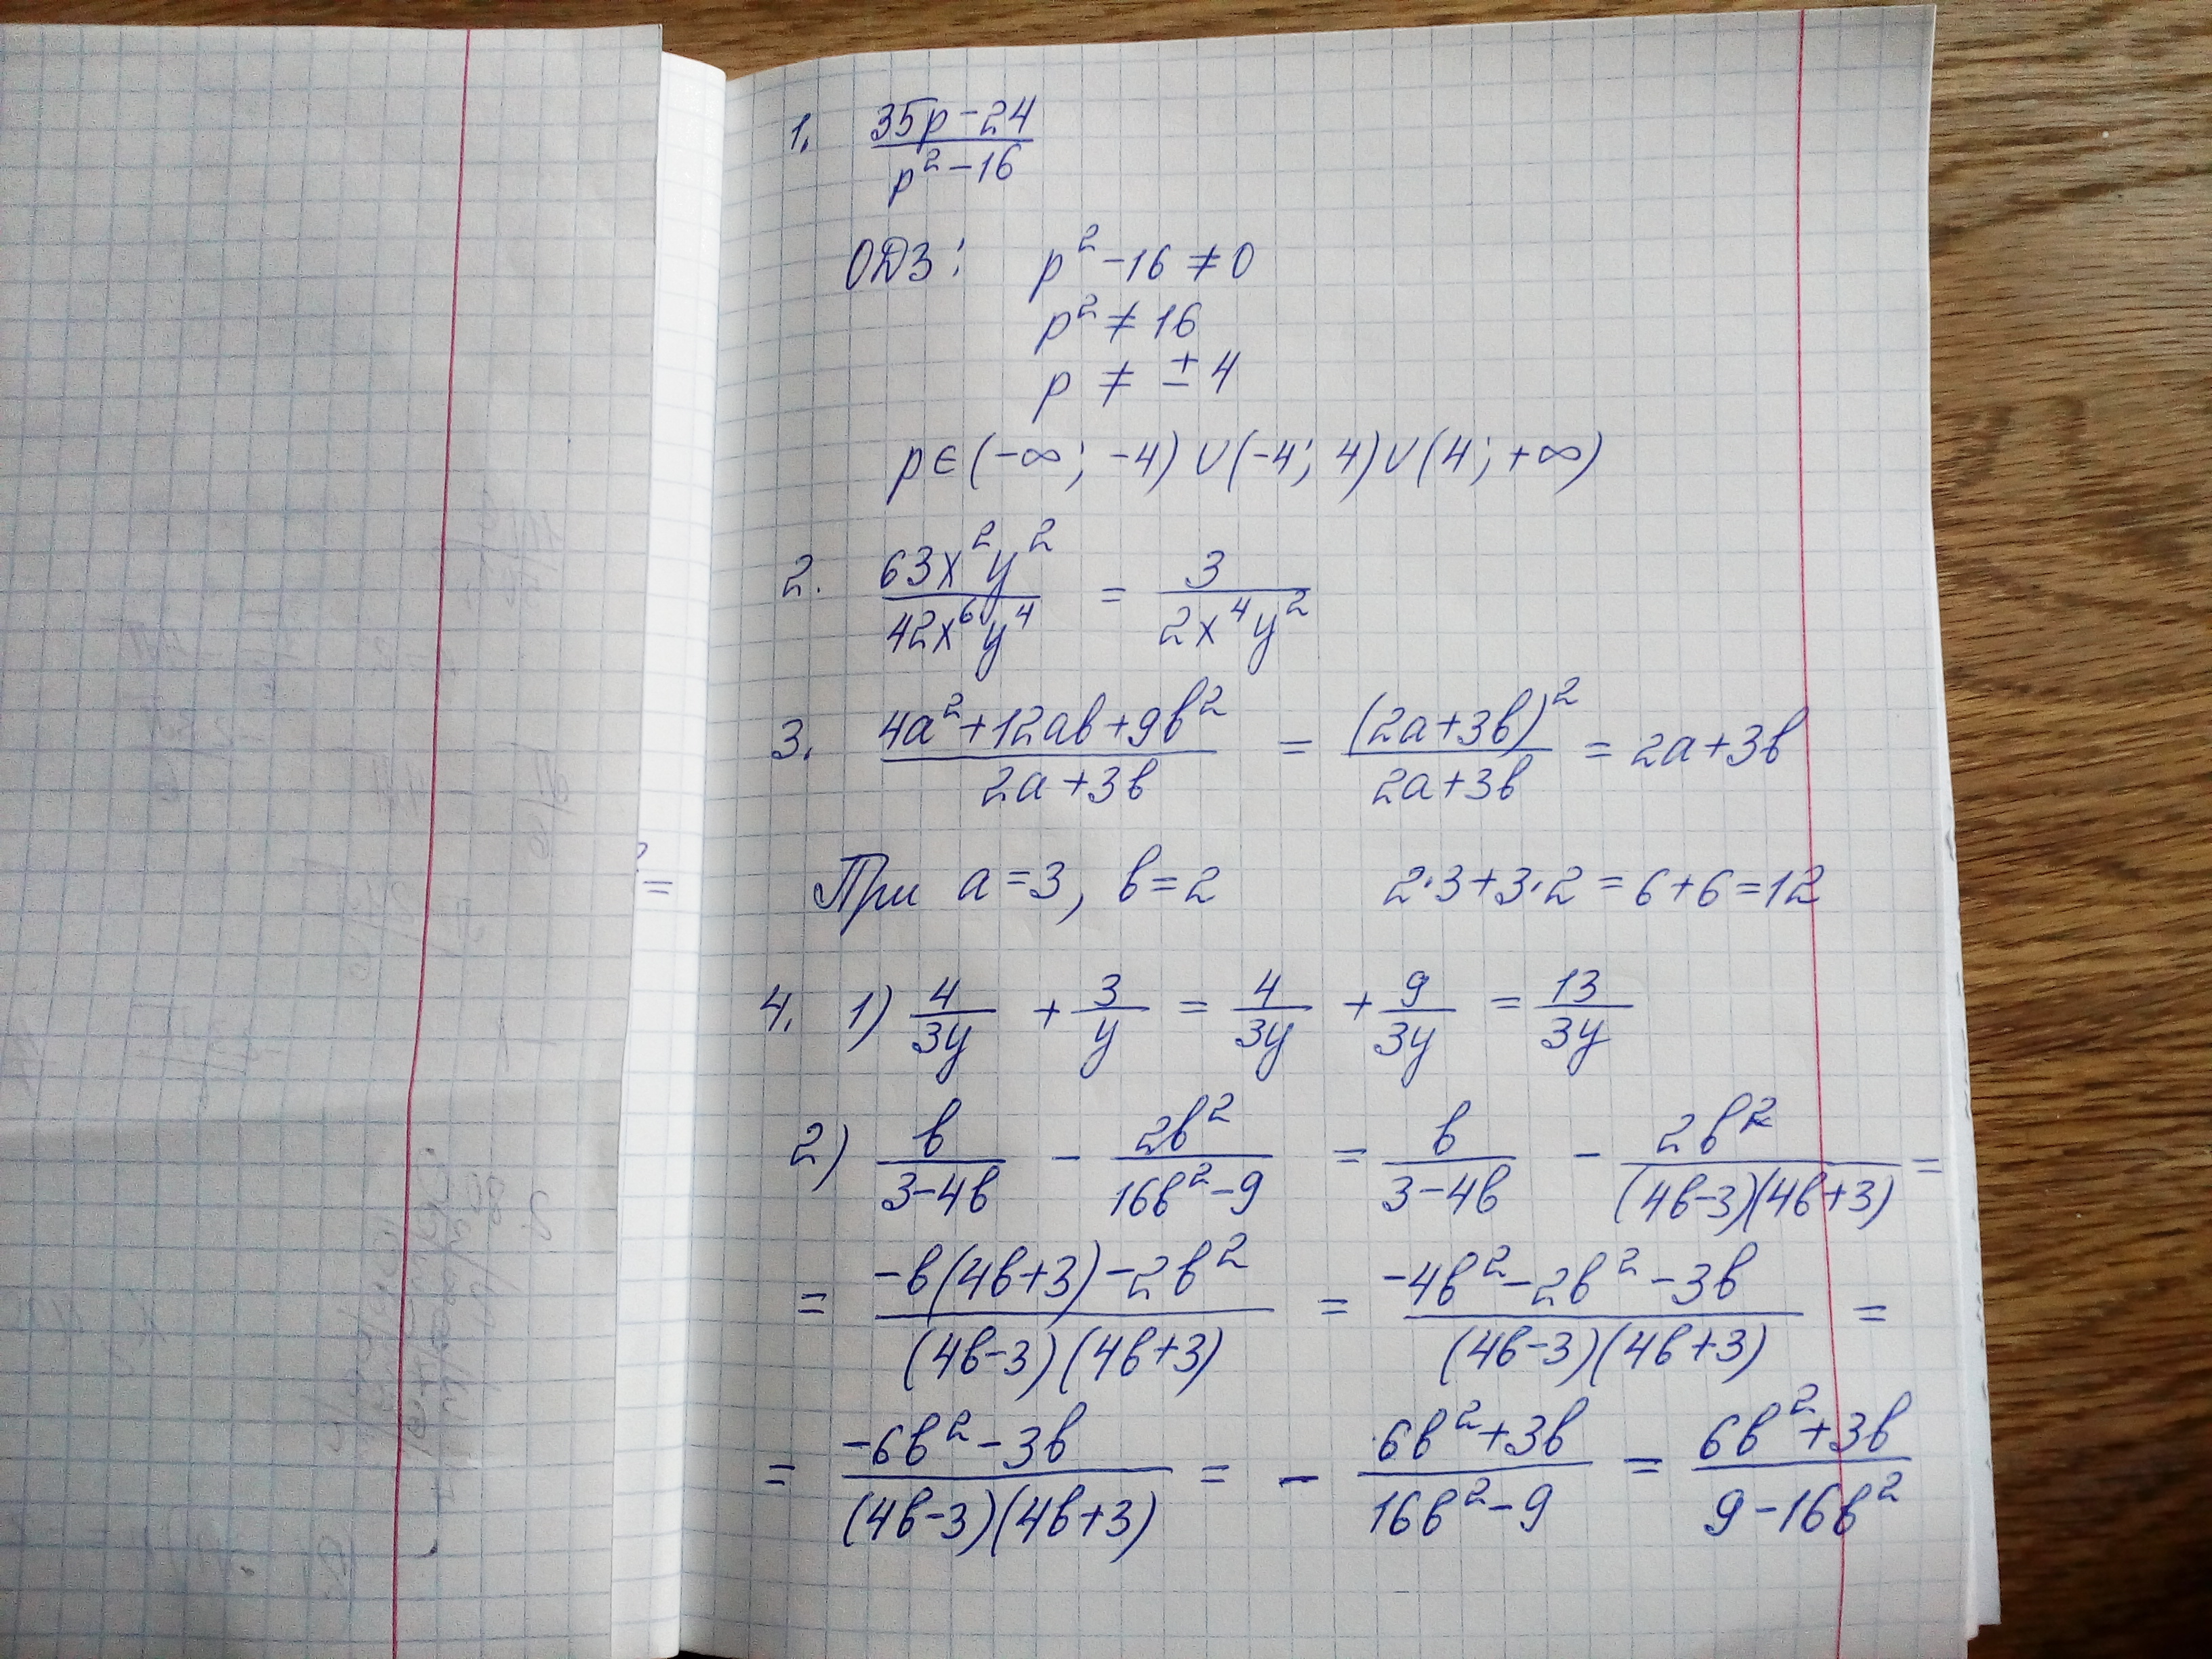 1. (35p-24)/(p²-16)
ОДЗ: p²-16≠0
p²≠16
p≠±4
p∈(-∞; -4)∪(-4; 4)∪(4; +∞)
2. (63x²y²)/(42x⁶y⁴) = 3/(2x⁴y²)
3. (4a²+12ab+9b²)/(2a+3b) = (2a+3b)²/(2a+3b) = 2a+3b
При a=3, b=2 2·3+3·2=6+6=12
4. 1) 4/(3y) + 3/y = 4/(3y) + 9/(3y) = 13/(3y)
2) b/(3-4b) - 2b²/(16b²-9) = b/(3-4b) - 2b²/((4b-3)(4b+3)) =
= (-b(4b+3)-2b²)/((4b-3)(4b+3)) = (-4b²-2b²-3b)/((4b-3)(4b+3)) =
= (-6b²-3b)/((4b-3)(4b+3)) = - (6b²+3b)/(16b²-9) = (6b²+3b)/(9-16b²)